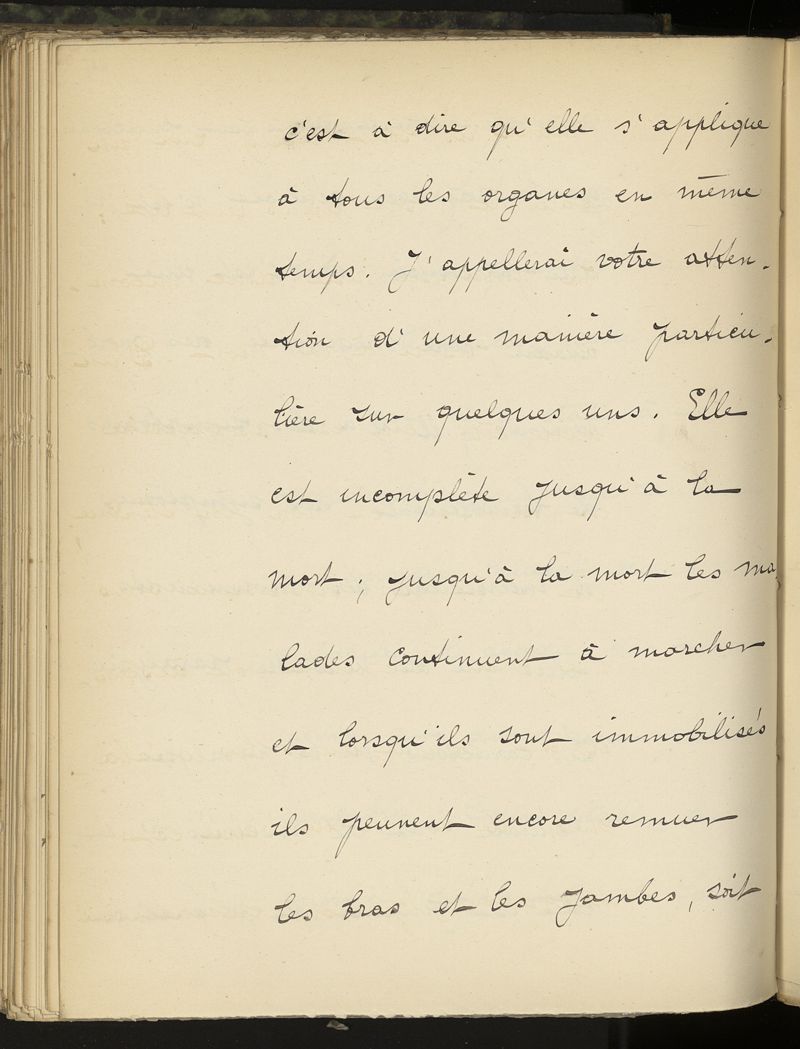 c'est à dire qu'elle s'applique
à tous les organes en même
temps. J'appellerai votre atten-
tion d'une manière particu-
lière sur quelques uns. Elle
est incomplète jusqu'à la
mort ; jusqu'à la mort les ma-
lades continuent à marcher
et lorsqu'ils sont immobilisés
ils peuvent encore remuer
les bras et les jambes, soit